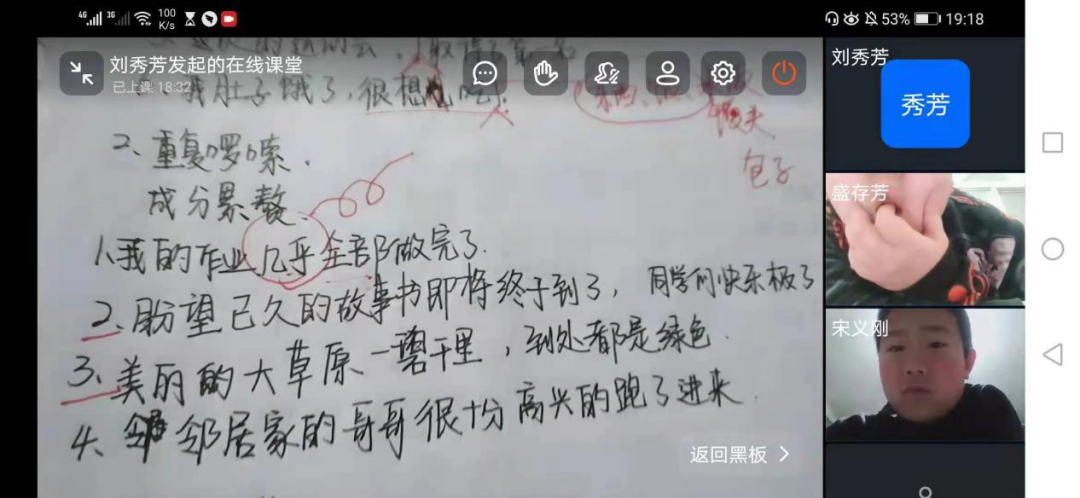 4G 3G 100 K/s 53% 19:18
刘秀芳发起的在线课堂
已上课 18:32
我肚子饿了,很想吃
馒头
包子
2、重复啰嗦.
成分累赘.
1、我的作业几乎全部做完了.
2、盼望已久的故事书即将终于到了,同学们快乐极了
3、美丽的大草原一碧千里,到处都是绿色.
4、邻居家的哥哥很十份高兴的跑了进来.
返回黑板
刘秀芳
秀芳
盛存芳
宋义刚